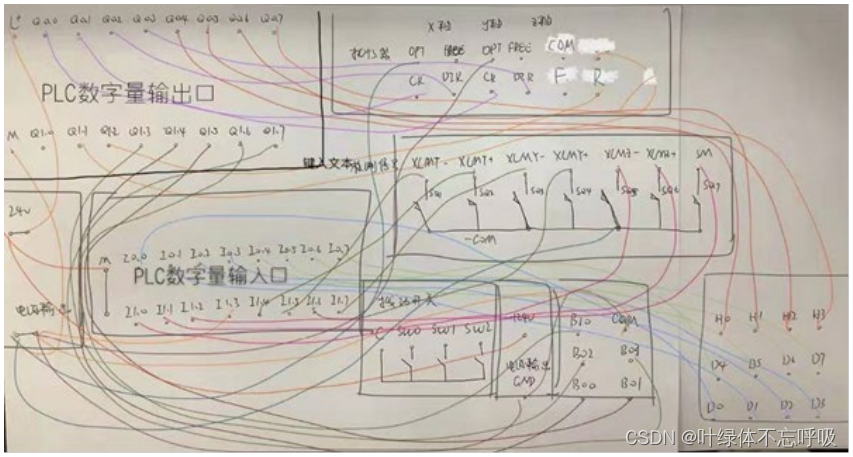 L+ Q0.0 Q0.1 Q0.2 Q0.3 Q0.4 Q0.5 Q0.6 Q0.7
PLC数字量输出口
M Q1.0 Q1.1 Q1.2 Q1.3 Q1.4 Q1.5 Q1.6 Q1.7
OPT FREE OPT FREE COM
CR DIR CR DIR F R
键入文本 XLMT- XLMT+ YLMT- YLMT+ SM
SQ1 SQ2 SQ3 SQ4 SQ5 SQ6 SQ7
-COM
24V
M I0.0 I0.1 I0.2 I0.3 I0.4 I0.5 I0.6 I0.7
PLC数字量输入口
I1.0 I1.1 I1.2 I1.3 I1.4 I1.5 I1.6 I1.7
电源输出
开关
C SW0 SW1 SW2
24V
电源输出
GND
B10 COM
B02 B03
B00 B01
H0 H1 H2 H3
D4 D5 D6 D7
D0 D1 D2 D3
CSDN @叶绿体不忘呼吸